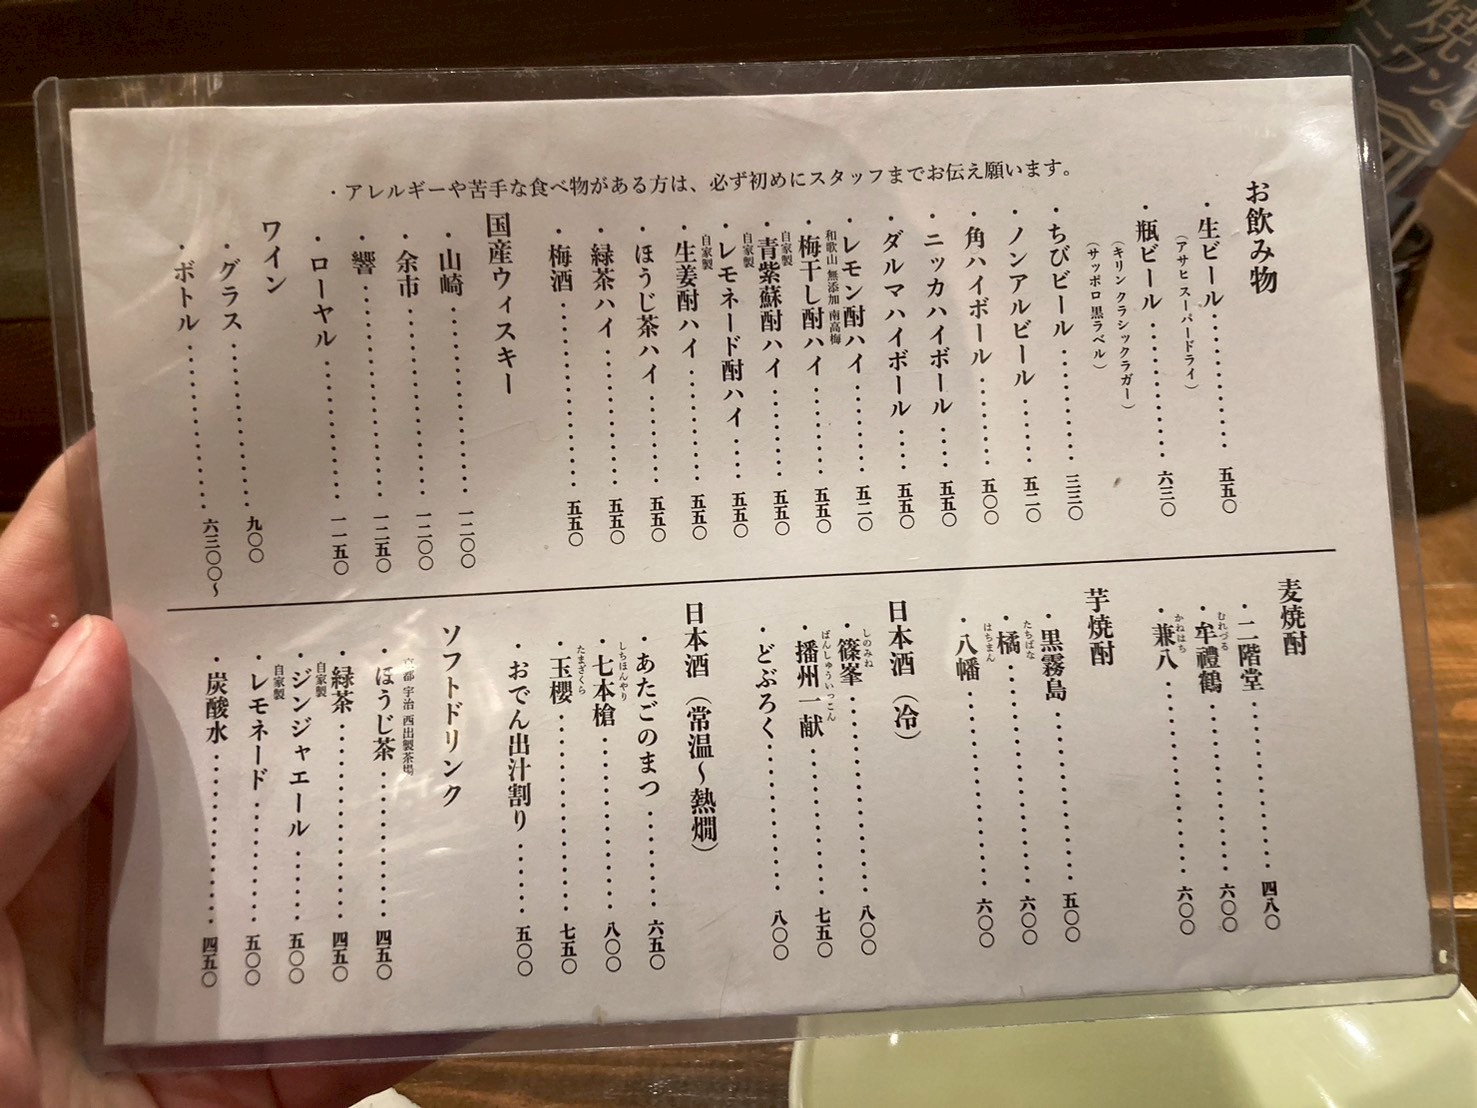 ・アレルギーや苦手な食べ物がある方は、必ず初めにスタッフまでお伝え願います。
お飲み物
・生ビール・・・・・・・・・・・・・五五〇
（アサヒ スーパードライ）
・瓶ビール・・・・・・・・・・・・・六三〇
（キリン クラシックラガー）
（サッポロ 黒ラベル）
・ちびビール・・・・・・・・・・三三〇
・ノンアルビール・・・・・・五二〇
・角ハイボール・・・・・・・・五〇〇
・ニッカハイボール・・・・五五〇
・ダルマハイボール・・・・五五〇
・レモン酎ハイ・・・・・・・・五二〇
和歌山 無添加 南高梅
・梅干し酎ハイ・・・・・・・・五五〇
自家製
・青紫蘇酎ハイ・・・・・・・・五五〇
自家製
・レモネード酎ハイ・・・・五五〇
自家製
・生姜酎ハイ・・・・・・・・・・五五〇
・ほうじ茶ハイ・・・・・・・・五五〇
・緑茶ハイ・・・・・・・・・・・・五五〇
・梅酒・・・・・・・・・・・・・・・・五五〇
国産ウィスキー
・山崎・・・・・・・・・・・・・・・・一二〇〇
・余市・・・・・・・・・・・・・・・・一二〇〇
・響・・・・・・・・・・・・・・・・・・一二五〇
・ローヤル・・・・・・・・・・・・一一五〇
ワイン
・グラス・・・・・・・・・・・・・・九〇〇
・ボトル・・・・・・・・・・・・・・六三〇〇～
麦焼酎
・二階堂・・・・・・・・・・・・・・四八〇
むれづる
・牟禮鶴・・・・・・・・・・・・・・六〇〇
かねはち
・兼八・・・・・・・・・・・・・・・・六〇〇
芋焼酎
・黒霧島・・・・・・・・・・・・・・五〇〇
たちばな
・橘・・・・・・・・・・・・・・・・・・六〇〇
はちまん
・八幡・・・・・・・・・・・・・・・・六〇〇
日本酒（冷）
しのみね
・篠峯・・・・・・・・・・・・・・・・八〇〇
ばんしゅういっこん
・播州一献・・・・・・・・・・・・七五〇
・どぶろく・・・・・・・・・・・・八〇〇
日本酒（常温～熱燗）
・あたごのまつ・・・・・・・・六五〇
しちほんやり
・七本槍・・・・・・・・・・・・・・八〇〇
たまざくら
・玉櫻・・・・・・・・・・・・・・・・七五〇
・おでん出汁割り・・・・・・五〇〇
ソフトドリンク
京都 宇治 西出製茶場
・ほうじ茶・・・・・・・・・・・・四五〇
・緑茶・・・・・・・・・・・・・・・・四五〇
自家製
・ジンジャエール・・・・・・五〇〇
自家製
・レモネード・・・・・・・・・・五〇〇
・炭酸水・・・・・・・・・・・・・・四五〇